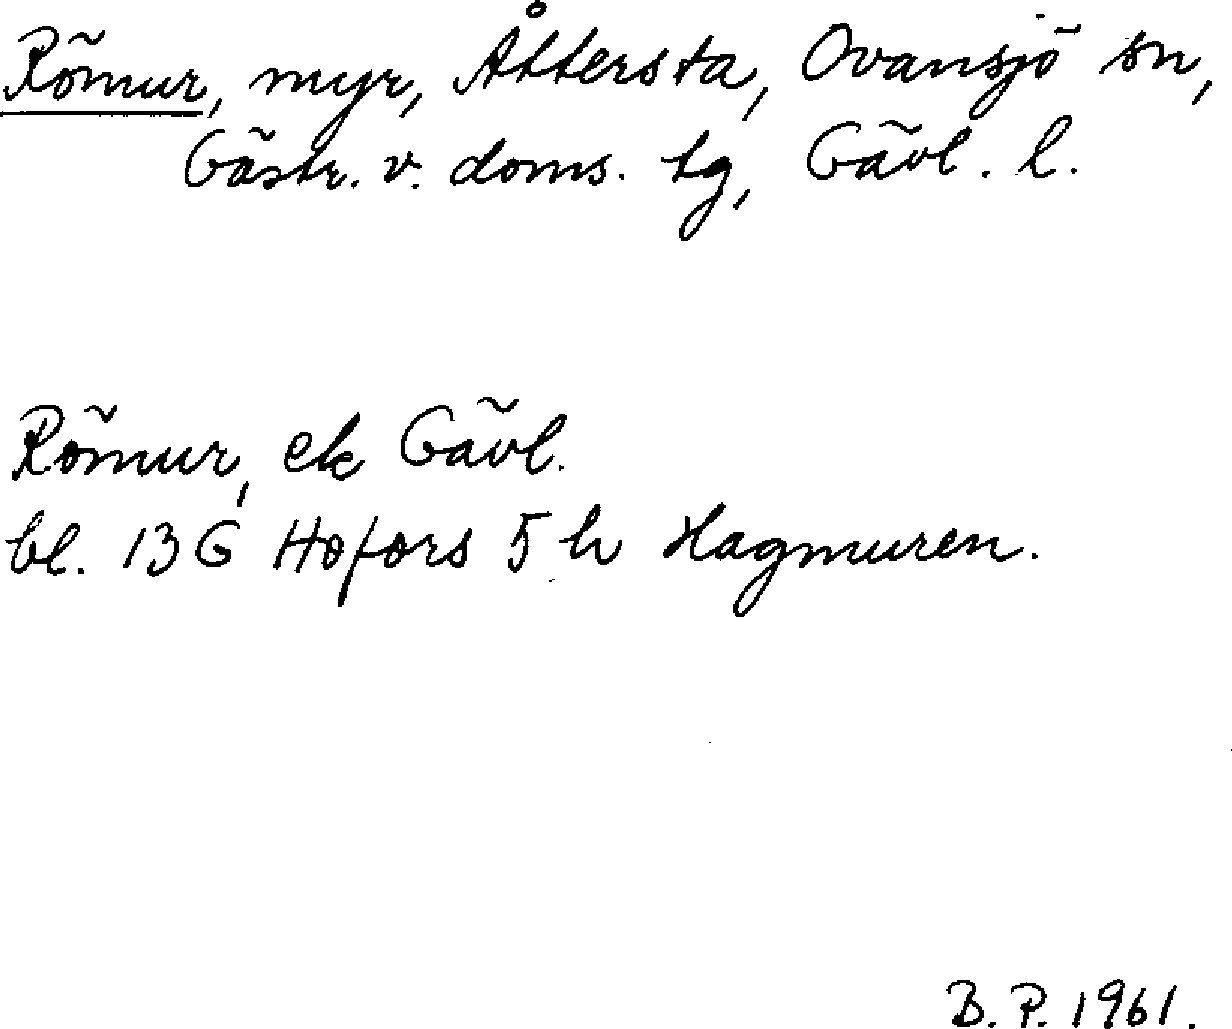 Römur, myr, Åttersta, Ovansjö sn,
Gästr. v. doms. tg, Gävl. l.
Römur, ek Gävl.
bl. 13G Hofors 5 h Hagmuren.
B. P. 1961.